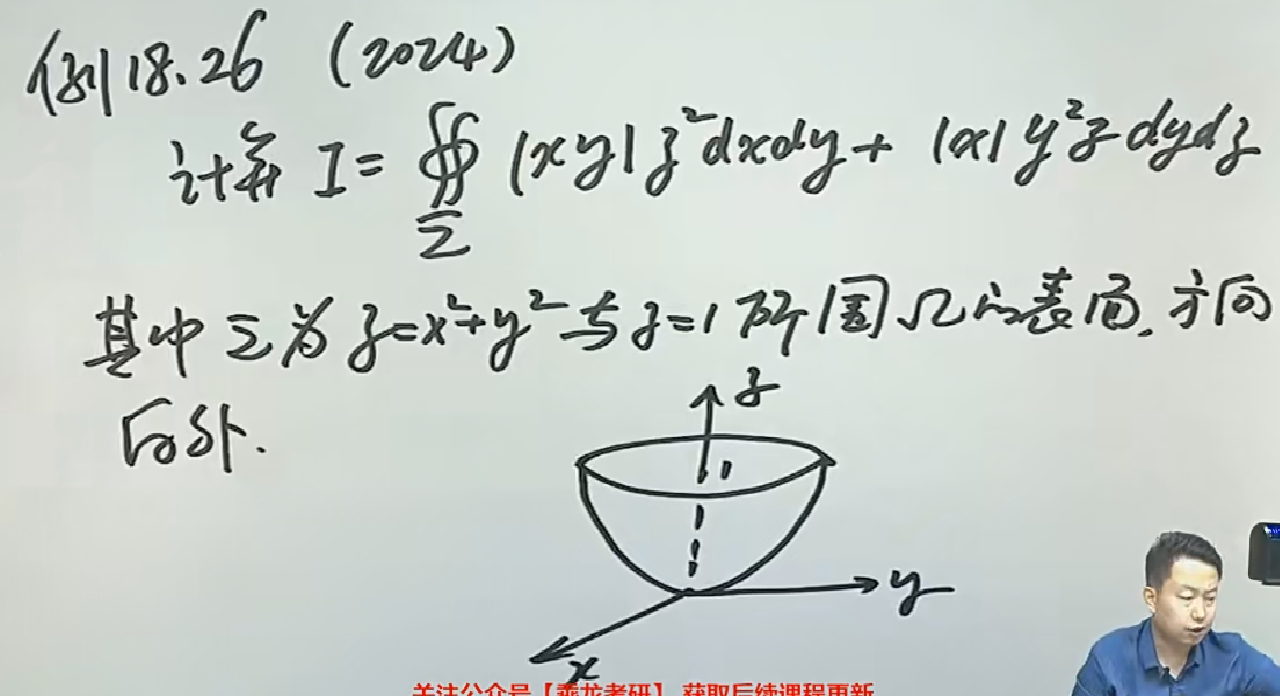 例18.26 (2024)
计算 I = ∯_Σ |xy|z²dxdy + |x|y²z dydz
其中Σ为z=x²+y²与z=1所围Ω的表面,方向
向外.
z
1
y
x
关注公众号【乘龙考研】获取后续课程更新